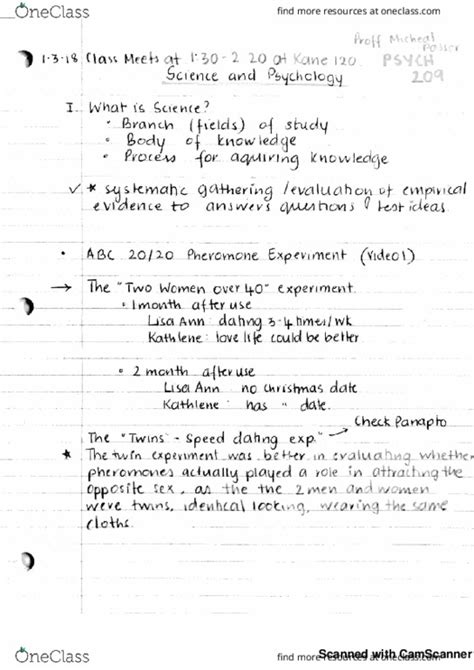 OneClass
find more resources at oneclass.com
Proff Micheal
1-3-18 Class Meets at 1:30-2 20 at Kane 120. PSYCH
Science and Psychology 209
I. What is Science?
• Branch (fields) of study
• Body of knowledge
• Process for aquiring knowledge
✓ * systematic gathering / evaluation of empirical
evidence to answers questions & test ideas.
• ABC 20/20 Pheromone Experiment (Video1)
→ The "Two Women over 40" experiment.
• 1month after use
Lisa Ann: dating 3-4 times/wk
Kathlene: love life could be better
• 2 month after use
Lisa Ann no christmas date
Kathlene: has " date.
Check Panapto
The "Twins - Speed dating exp."
* The twin experiment was better in evaluating whether
pheromones actually played a role in attracting the
opposite sex, as the the 2 men and women
were twins, identical looking, wearing the same
cloths.
OneClass
find more resources at oneclass.com
Scanned with CamScanner